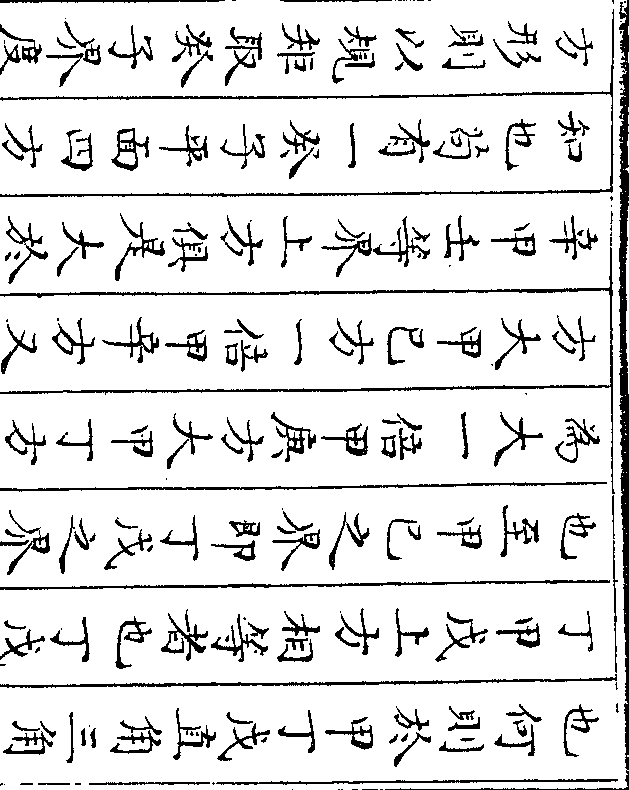 也何則於甲丁戊直角三角
丁甲戊上方相等者也丁戊
也至甲己之界即丁戊之界
為大一倍甲庚方大甲丁方
方大甲己方一倍甲辛方又
辛甲壬等界上方俱是大於
知也茍有一癸子平面四方
方形則以規矩取癸子界度